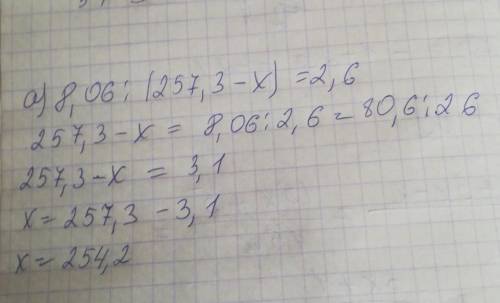 а) 8,06 : (257,3 - х) = 2,6
257,3 - х = 8,06 : 2,6 = 80,6 : 26
257,3 - х = 3,1
х = 257,3 - 3,1
х = 254,2